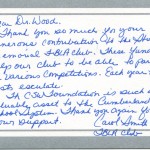 Dear Dr. Wood.
Thank you so much for your
generous contribution to the
Memorial FBLA Club. These funds
help our club to be able to
various competitions. Each year
costs escalate.
The CSW Foundation is such a
valuable asset to the Cumberland
School System. Thank you again for
your support.
Carol Smith
FBLA Club